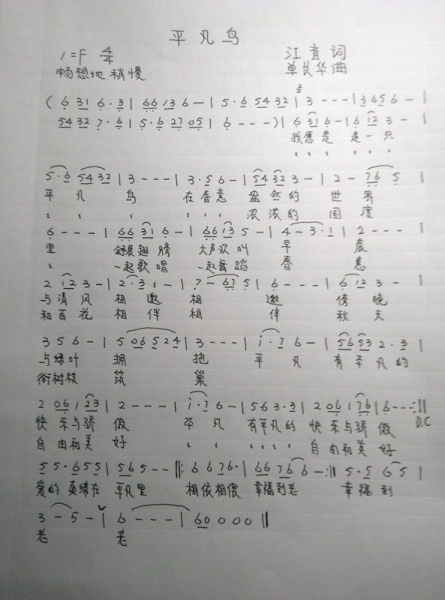 平凡鸟
1=F 4/4 江音词
畅想地 稍慢 单长华曲
( 6 31 6·3 | 66 13 6 - | 5·6 54 32 | 3 - - - | 36 56 - |
54 32 7·6 | 5·6 27 05 | 6 - - - ) | 6 31 6 - | 6 12 3 - |
我愿是 是一只
5·6 54 32 | 3 - - - | 3·5 6 - | 54 32 3 - | 2 - 76 5 |
平凡鸟 在春意 盎然的 世界
浓浓的 国度
6 - - - | 66 31 6 - | 66 13 5 - | 4 - 3·1 | 2 - - - |
里 舒展翅膀 大声欢叫 早晨
一起歌唱 一起舞蹈 春意
2 12 3 - | 2·3 1 - | 7 - 67 5 | 6 - - - | 6 12 3 - |
与清风 相邀 相邀 傍晚
和百花 相伴 相伴 秋天
3 5 6 - | 5 06 524 | 3 - - - | i·7 6 - | 56 53 2·3 |
与绿叶 拥抱 平凡 有平凡的
衔树枝 筑巢
2 06 1 23 | 2 - - - | i·7 6 - | 56 3·3 | 2 06 1 76 | 6 - - :|| D.C
快乐与骄傲 平凡 有平凡的 快乐与骄傲
自由和美好 自由和美好
5 5·6 55 | 5 65 - - ||: 6 6 76· | 66 76 6 - :|| 5·5 65 |
爱的真缘在 平凡里 相依相偎 幸福到老 幸福到
3 - 5 - | 6 - - - | 60 0 0 0 ||
老 老